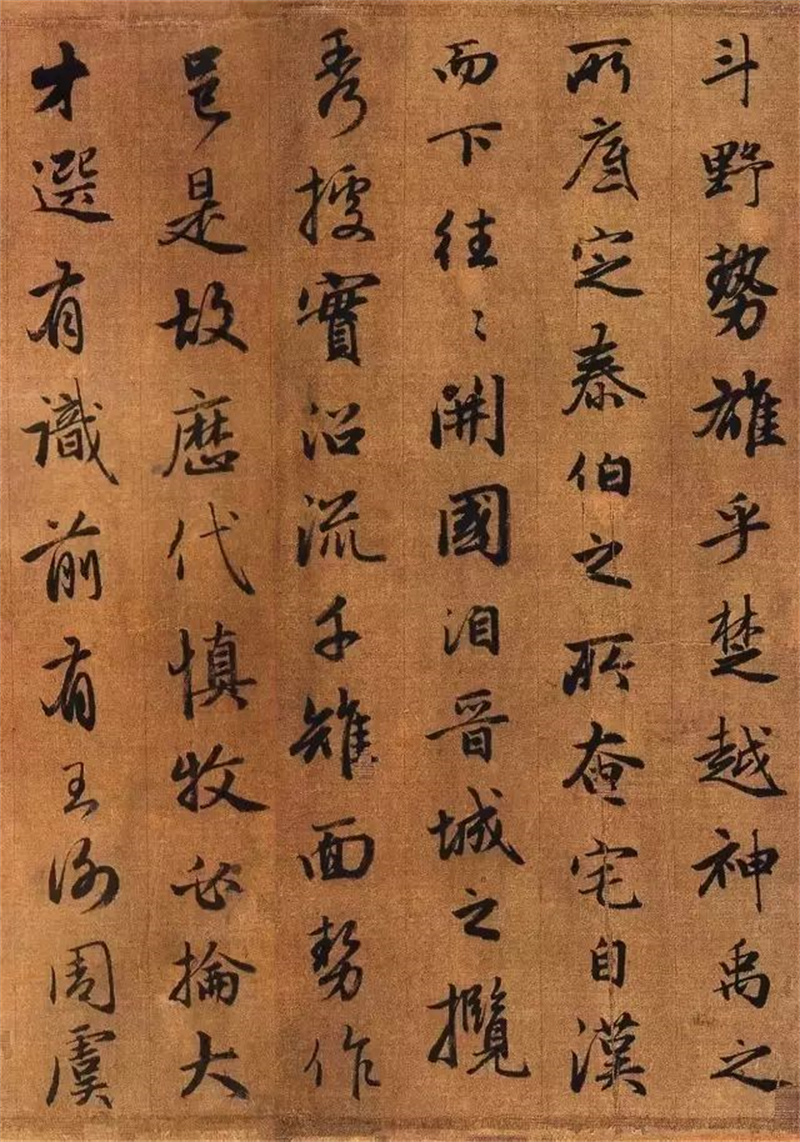 斗野勢雄乎楚越神禹之
所底定泰伯之所奄宅自漢
而下往〻開國洎晉城之攬
秀擾實沿流千雉面勢作
邑是故歷代慎牧必掄大
才選有識前有王謝周虞